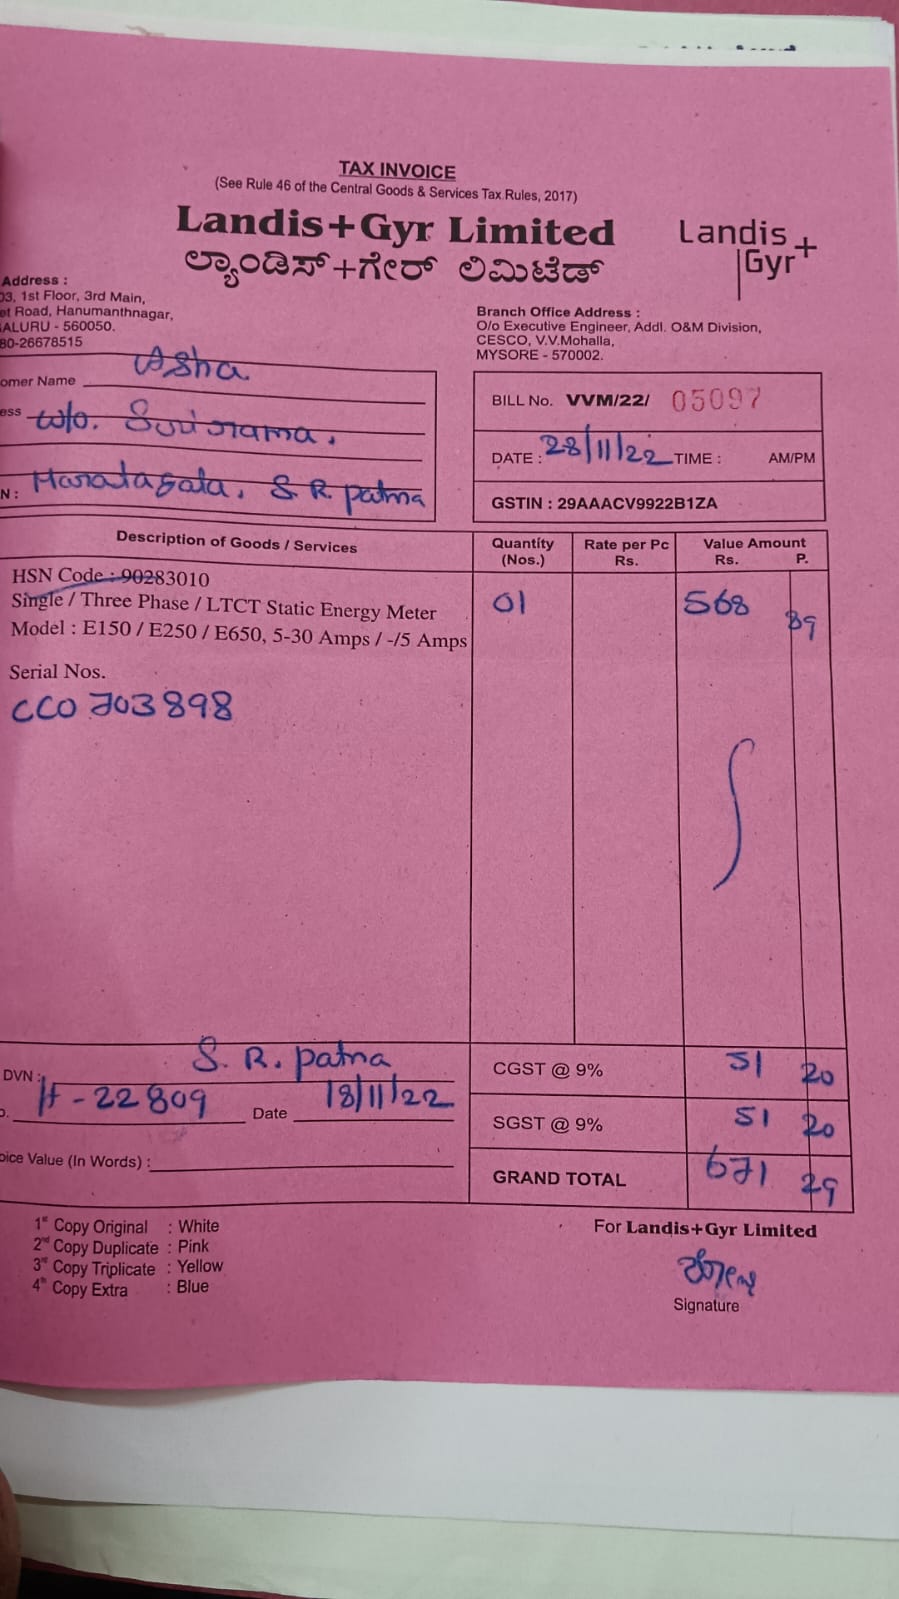 TAX INVOICE
(See Rule 46 of the Central Goods & Services Tax Rules, 2017)
Landis+Gyr Limited
ಲ್ಯಾಂಡಿಸ್+ಗೇರ್ ಲಿಮಿಟೆಡ್
Landis
Gyr+
Address :
03, 1st Floor, 3rd Main,
et Road, Hanumanthnagar,
ALURU - 560050.
80-26678515
Branch Office Address :
O/o Executive Engineer, Addl. O&M Division,
CESCO, V.V.Mohalla,
MYSORE - 570002.
omer Name Asha
ess w/o.
N : S R patna
BILL No. VVM/22/ 05097
DATE : 28/11/22 TIME : AM/PM
GSTIN : 29AAACV9922B1ZA
Description of Goods / Services
Quantity (Nos.)
Rate per Pc Rs.
Value Amount
Rs. P.
HSN Code : 90283010
Single / Three Phase / LTCT Static Energy Meter
Model : E150 / E250 / E650, 5-30 Amps / -/5 Amps
01 568 89
Serial Nos.
CC0703898
DVN : S. R. patna
o. H-22809 Date 18/11/22
oice Value (In Words) :
CGST @ 9% 51 20
SGST @ 9% 51 20
GRAND TOTAL 671 29
1st Copy Original : White
2nd Copy Duplicate : Pink
3rd Copy Triplicate : Yellow
4th Copy Extra : Blue
For Landis+Gyr Limited
Signature